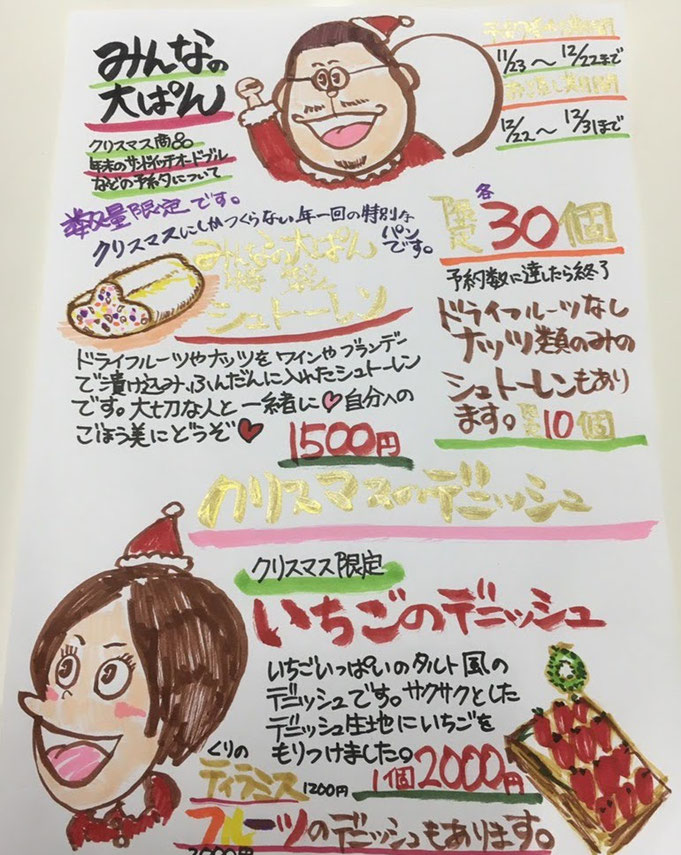 みんなの
大ぱん
クリスマス商品
年末のサンドイッチオードブル
などの予約について
予約受付期間
11/23〜12/22まで
お渡し期間
12/22〜12/31まで
数量限定です。
クリスマスにしかつくらない、年一回の特別な
パンです。
みんなの大ぱん
シュトーレン
ドライフルーツやナッツを、ワインやブランデー
で漬け込み、ふんだんに入れたシュトーレン
です。大切な人と一緒に♡自分への
ごほう美にどうぞ♡
1500円
各
限定30個
予約数に達したら終了
ドライフルーツなし
ナッツ類のみの
シュトーレンもあり
ます。限定10個
クリスマスのデニッシュ
クリスマス限定
いちごのデニッシュ
いちごいっぱいのタルト風の
デニッシュです。サクサクとした
デニッシュ生地にいちごを
もりつけました。
1個2000円
くりの
ティラミス 1200円
フルーツのデニッシュもあります。
2000円